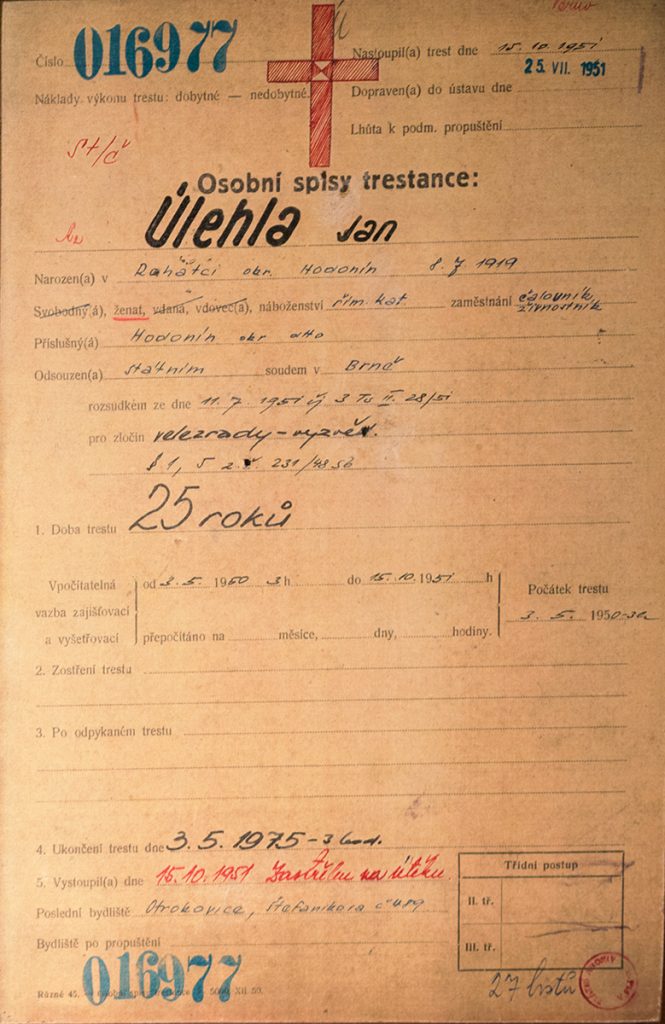 Brno
Číslo 016977
Nastoupil(a) trest dne 15. 10. 1951
25. VII. 1951
Náklady výkonu trestu: dobytné — nedobytné.
Dopraven(a) do ústavu dne
Lhůta k podm. propuštění
St/č
Osobní spisy trestance:
Úlehla Jan
Narozen(a) v Rohátci okr. Hodonín 8. 7. 1919
Svobodný(á), ženat, vdaná, vdovec(a), náboženství řím. kat zaměstnání čalouník, živnostník
Příslušný(á) Hodonín okr. dtto
Odsouzen(a) státním soudem v Brně
rozsudkem ze dne 11. 7. 1951 čj 3 Ts II. 28/51
pro zločin velezrady - vyzvěd.
§ 1, 5 z. č. 231/48 Sb
1. Doba trestu 25 roků
Vpočitatelná vazba zajišťovací a vyšetřovací
od 3. 5. 1950 3 h. do 15. 10. 1951 h
přepočítáno na měsíce, dny, hodiny.
Počátek trestu
3. 5. 1950
2. Zostření trestu
3. Po odpykaném trestu
4. Ukončení trestu dne 3. 5. 1975 - 3 hod.
5. Vystoupil(a) dne 15. 10. 1951 Zastřelen na útěku.
Poslední bydliště Otrokovice, Štefanikova č 489
Bydliště po propuštění
Třídní postup
II. tř.
III. tř.
016977
Různé 45.
XII. 50.
27 listů